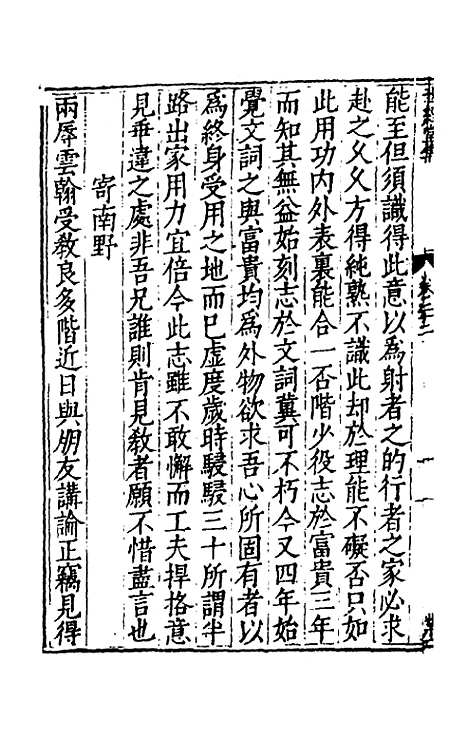 能至但須識得此意以為射者之的行者之家必求
赴之久久方得純熟不識此却於理能不礙否只如
此用功内外表裏能合一否階少役志於富貴三年
而知其無益始刻志於文詞冀可不朽今又四年始
覺文詞之與富貴均為外物欲求吾心所固有者以
為終身受用之地而已虛度歲時駸駸三十所謂半
路出家用力宜倍今此志雖不敢懈而工夫捍格意
見乖違之處非吾兄誰則肯見教者願不惜盡言也
寄南野
兩辱雲翰受教良多階近日與朋友講論正竊見得